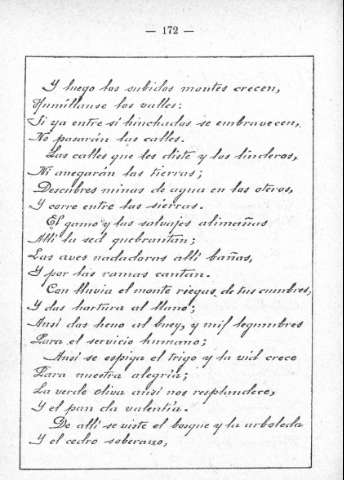 — 172 —
Y luego los subidos montes crecen,
Humíllanse los valles:
Si ya entre sí hinchados se embravecen,
No pasarán las calles.
Las calles que les diste y los linderos,
Ni anegarán las tierras;
Descubres minas de agua en los oteros,
Y corre entre las sierras.
El gamo y las salvajes alimañas
Allí la sed quebrantan;
Las aves nadadoras allí bañas,
Y por las ramas cantan.
Con lluvia el monte riegas de tus cumbres,
Y das hartura al llano;
Ansí das heno al buey, y mil legumbres
Para el servicio humano;
Ansí se espiga el trigo y la vid crece
Para nuestra alegría;
La verde oliva ansí nos resplandece,
Y el pan da valentía.
De allí se viste el bosque y la arboleda
Y el cedro soberano,